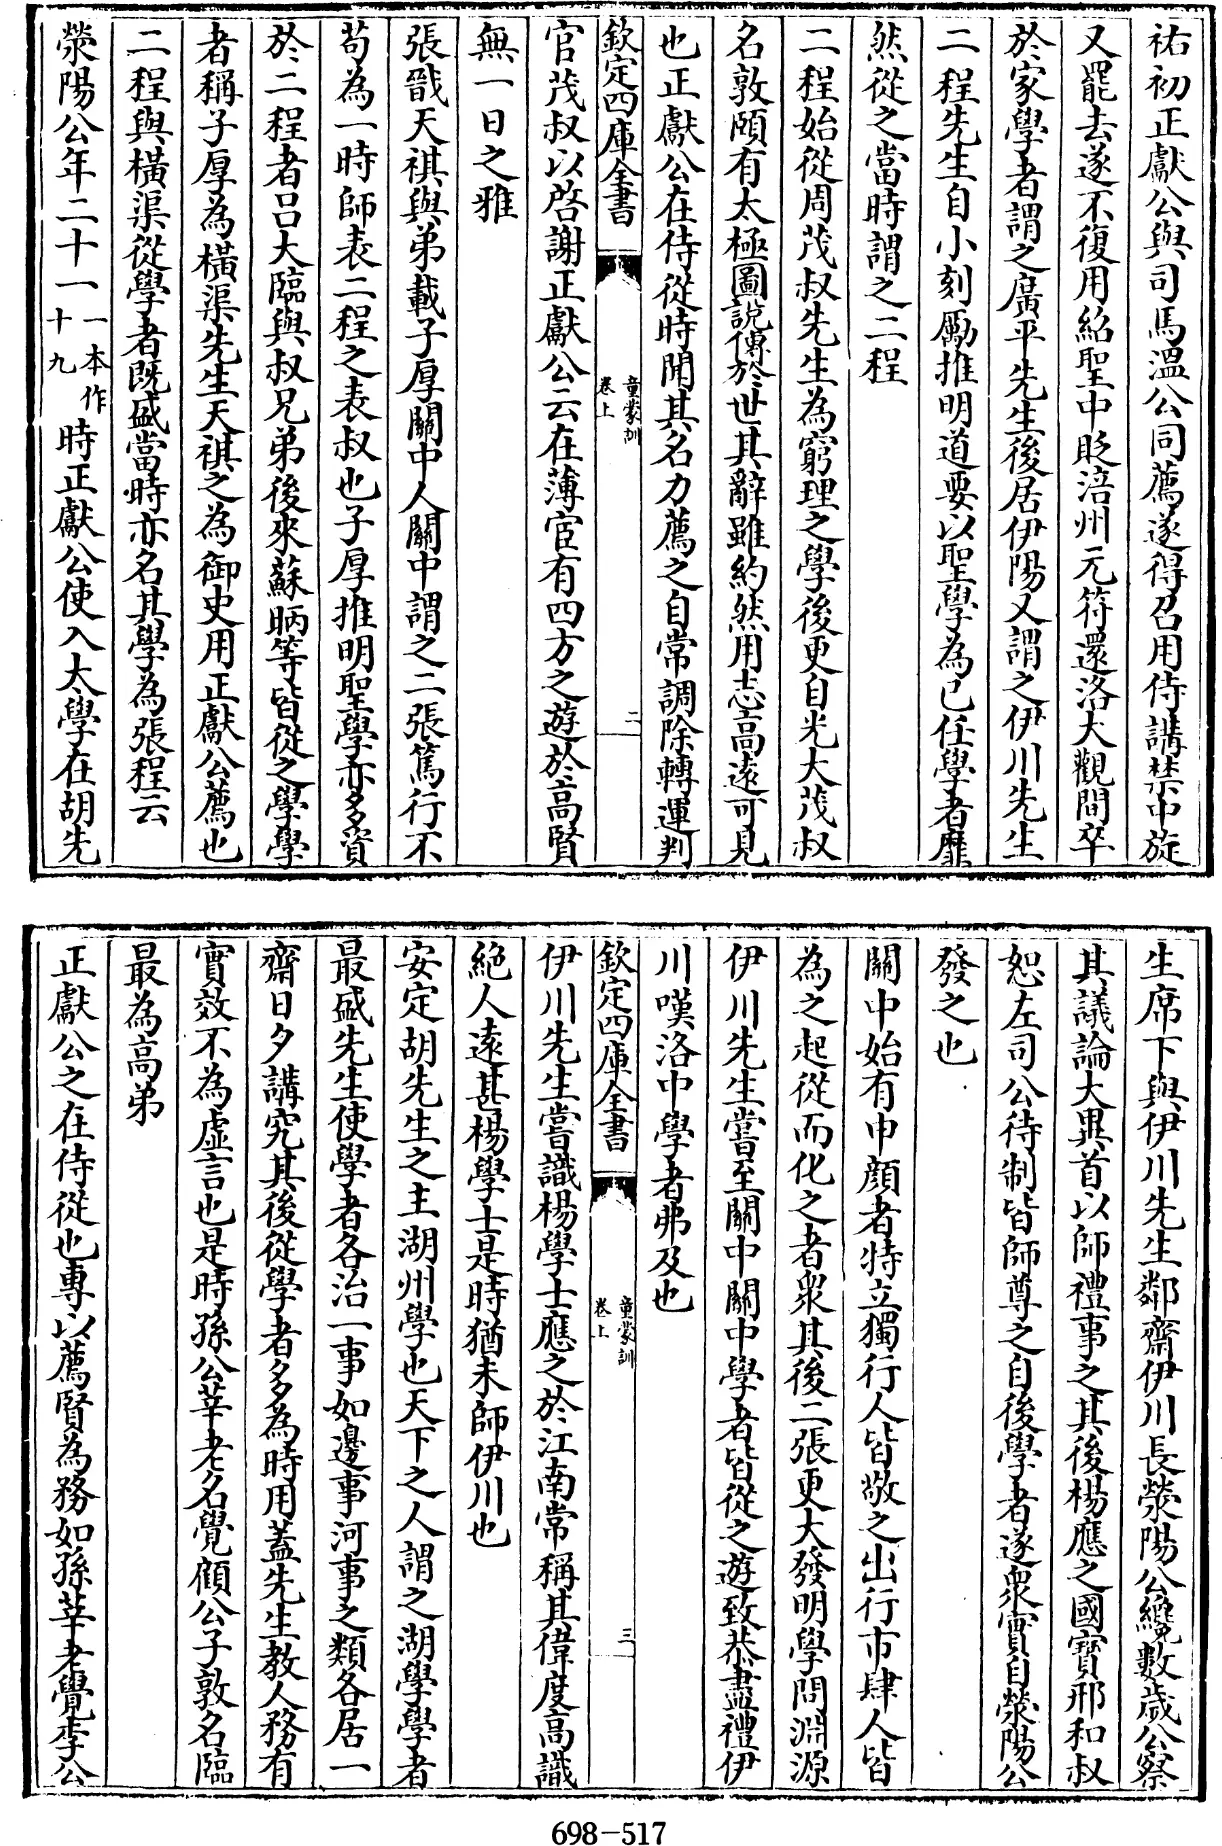 祐初正獻公與司馬溫公同薦遂得召用侍講禁中旋
又罷去遂不復用紹聖中貶涪州元符還洛大觀間卒
於家學者謂之廣平先生後居伊陽又謂之伊川先生
二程先生自小刻勵推明道要以聖學為已任學者靡
然從之當時謂之二程
二程始從周茂叔先生為窮理之學後更自光大茂叔
名敦頤有太極圖說傳於世其辭雖約然用志高遠可見
也正獻公在侍從時聞其名力薦之自常調除轉運判
欽定四庫全書
童蒙訓
卷上
二
官茂叔以啓謝正獻公云在薄宦有四方之遊於高賢
無一日之雅
張戩天祺與弟載子厚關中人關中謂之二張篤行不
苟為一時師表二程之表叔也子厚推明聖學亦多資
於二程者呂大臨與叔兄弟後來蘇昞等皆從之學學
者稱子厚為橫渠先生天祺之為御史用正獻公薦也
二程與橫渠從學者既盛當時亦名其學為張程云
滎陽公年二十一一本作十九時正獻公使入太學在胡先
生席下與伊川先生鄰齋伊川長滎陽公纔數歲公察
其議論大異首以師禮事之其後楊應之國寶邢和叔
恕左司公待制皆師尊之自後學者遂衆實自滎陽公
發之也
關中始有申顔者特立獨行人皆敬之出行市肆人皆
為之起從而化之者衆其後二張更大發明學問淵源
伊川先生嘗至關中關中學者皆從之遊致恭盡禮伊
川嘆洛中學者弗及也
欽定四庫全書
童蒙訓
卷上
三
伊川先生嘗識楊學士應之於江南常稱其偉度高識
絶人遠甚楊學士是時猶未師伊川也
安定胡先生之主湖州學也天下之人謂之湖學學者
最盛先生使學者各治一事如邊事河事之類各居一
齋日夕講究其後從學者多為時用蓋先生教人務有
實效不為虛言也是時孫公莘老名覺顧公子敦名臨
最為高弟
正獻公之在侍從也專以薦賢為務如孫莘老覺李公
698-517